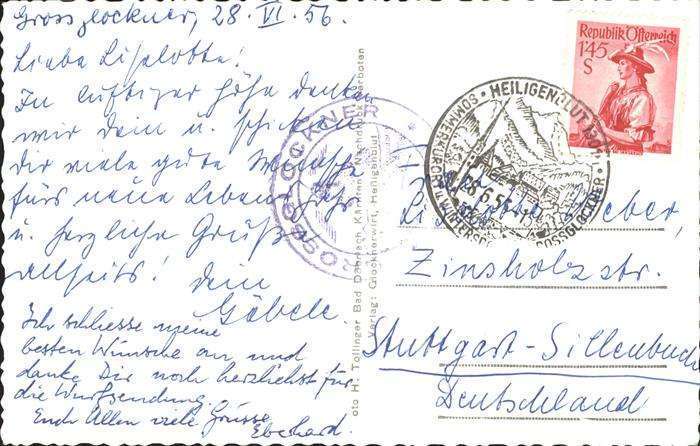 Grossglockner, 28. VI. 56.
Liebe Liselotte!
In luftiger Höhe denken
wir Dein u. schicken
Dir viele gute Wünsche
fürs neue Lebensjahr
u. herzliche Grüße
allseits! Dein
Göbele.
Ich schliesse meine
besten Wünsche an und
danke Dir noch herzlichst für
die Wurfsendung.
Euch Allen viele Grüsse
Eberhard.
oto H. Tollinger Bad Döbriach Kärnten Nachdruck verboten
Verlag: Glocknerwirt, Heiligenblut
GROSSGLOCKNER
Republik Österreich
1·45
S
HEILIGENBLUT 1301
SOMMERKURORT U. WINTERSP
GROSSGLOCKNER
28.6.56
Liselotte
Zinsholzstr.
Stuttgart-Sillenbuch
Deutschland